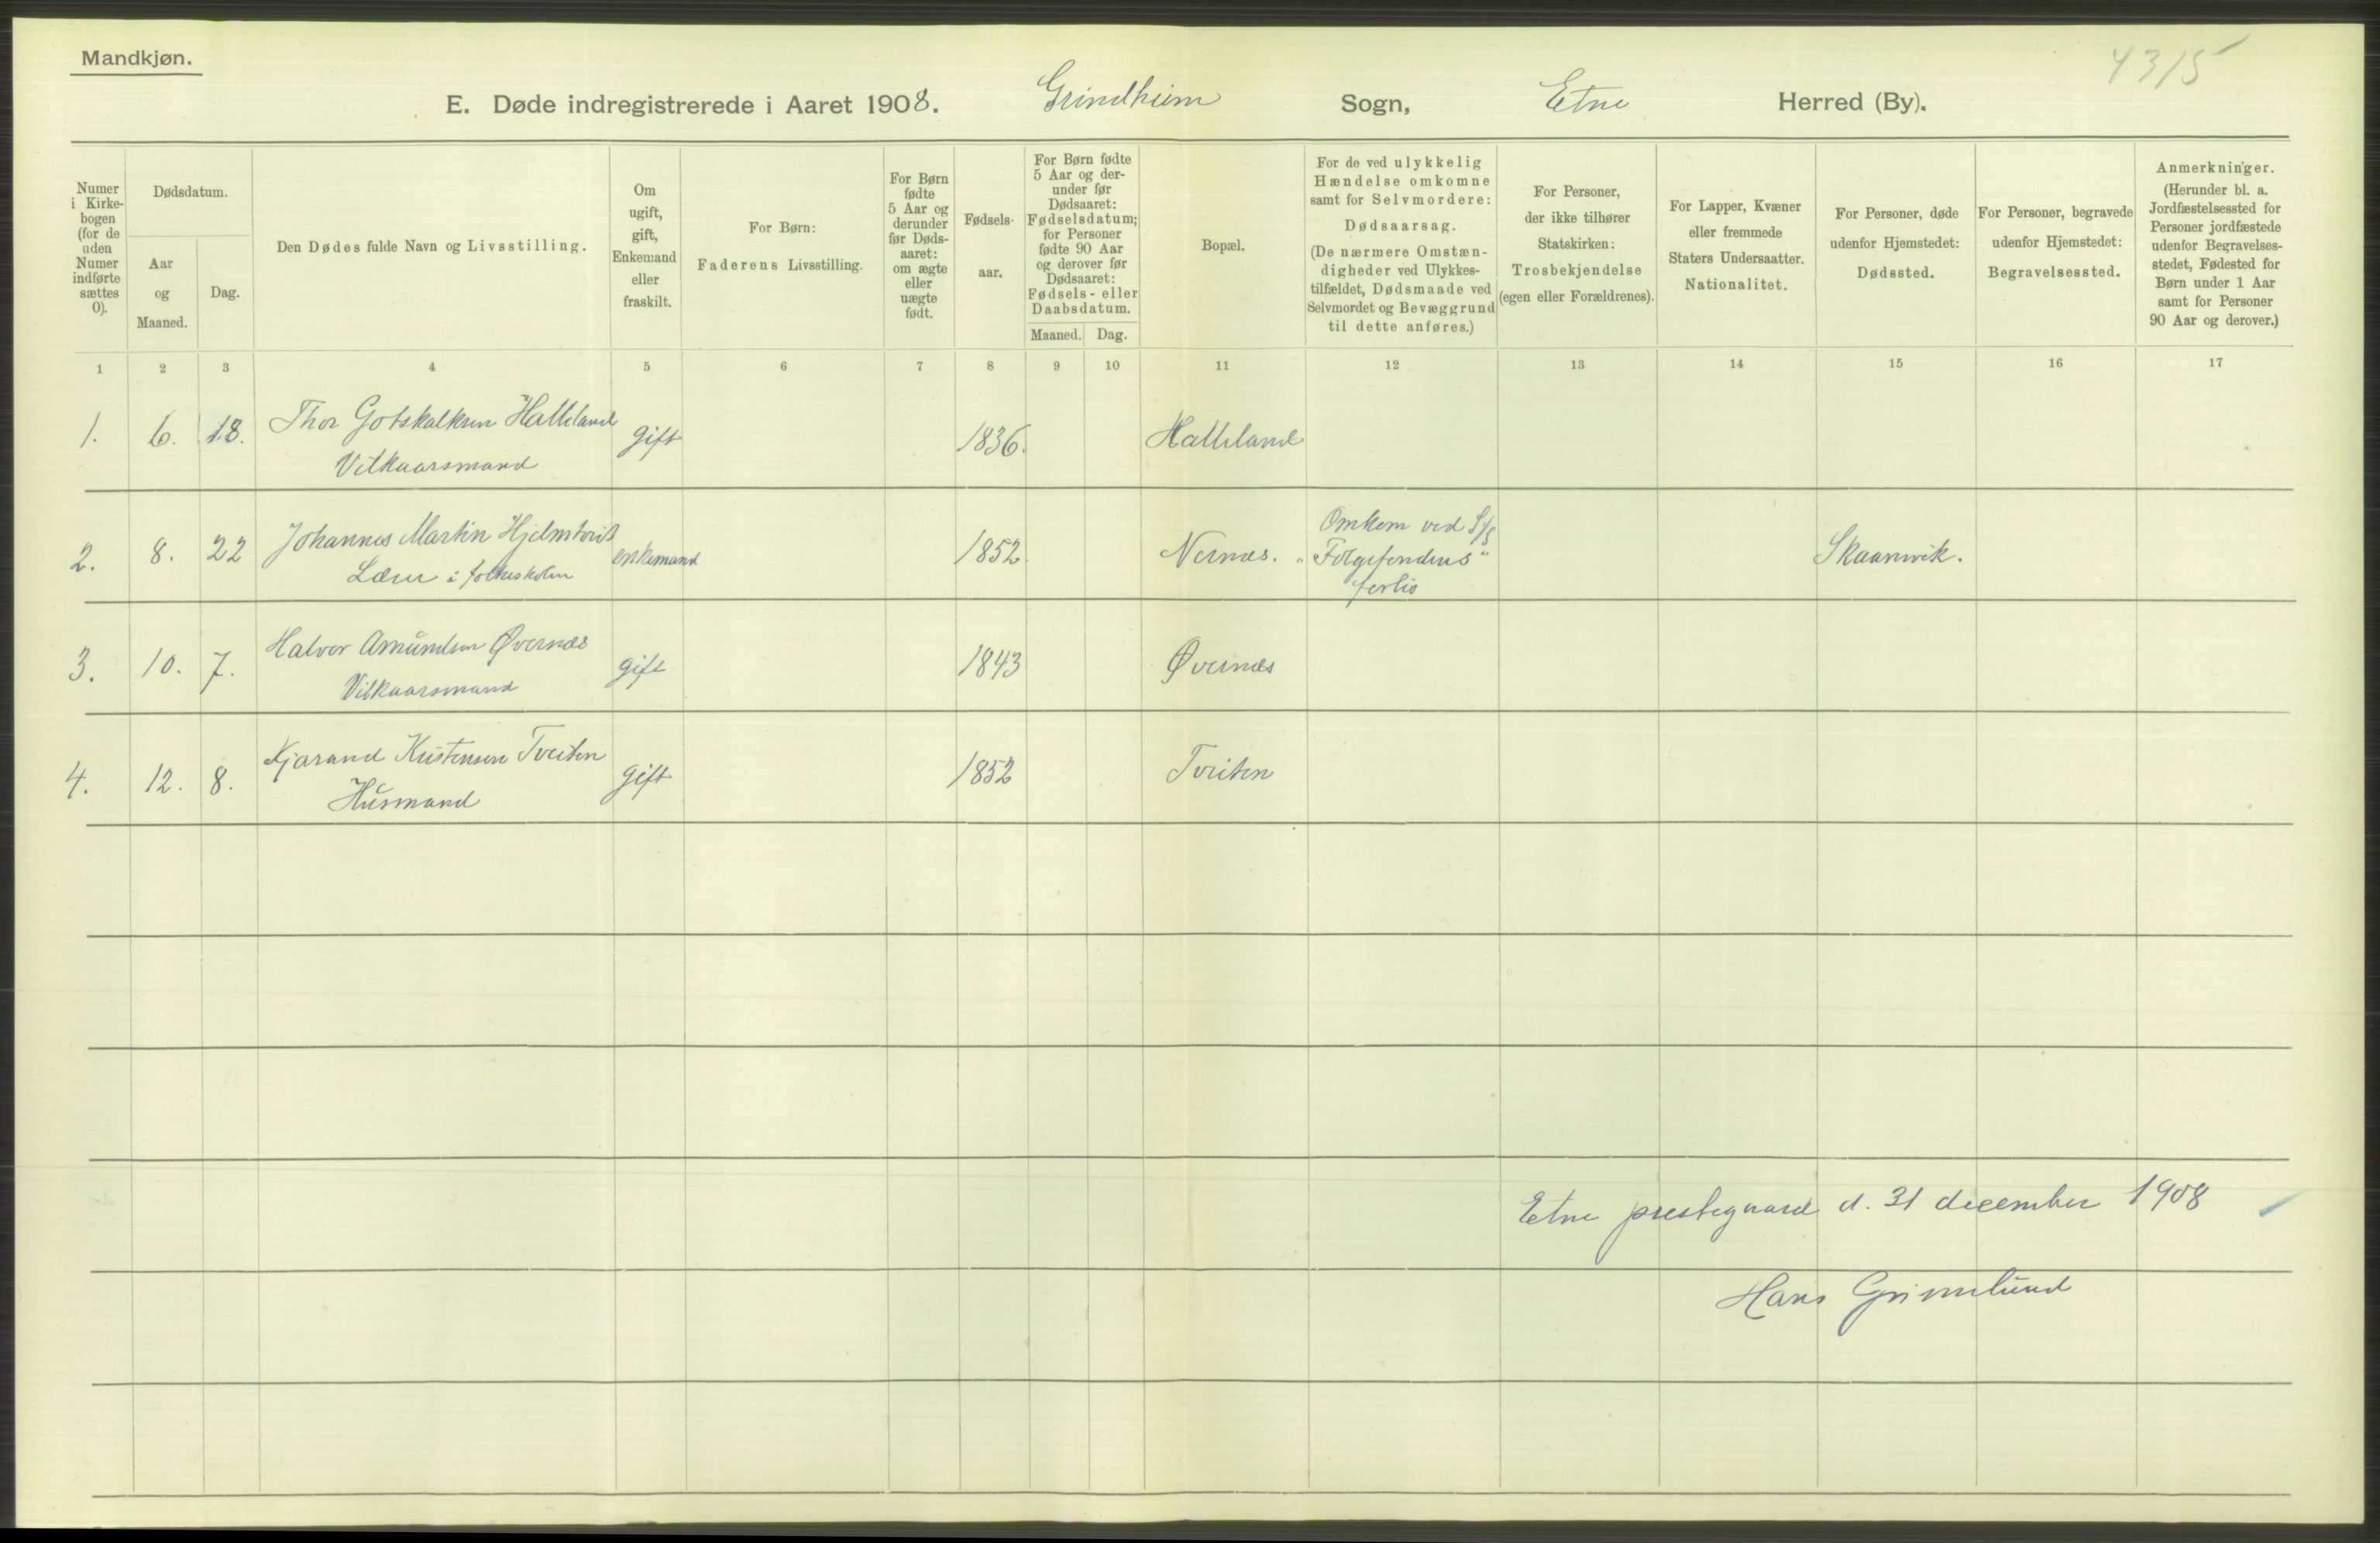 Mandkjøn.
4315
E. Døde indregistrerede i Aaret 1908. Grindheim Sogn, Etne Herred (By).
Numer i Kirke-bogen (for de uden Numer indførte sættes 0).
Dødsdatum.
Aar og Maaned.
Dag.
Den Dødes fulde Navn og Livsstilling.
Om ugift, gift, Enkemand eller fraskilt.
For Børn: Faderens Livsstilling.
For Børn fødte 5 Aar og derunder før Døds-aaret: om ægte eller uægte født.
Fødsels-aar.
For Børn fødte 5 Aar og der-under før Dødsaaret: Fødselsdatum; for Personer fødte 90 Aar og derover før Dødsaaret: Fødsels- eller Daabsdatum.
Maaned. Dag.
Bopæl.
For de ved ulykkelig Hændelse omkomne samt for Selvmordere: Dødsaarsag. (De nærmere Omstæn-digheder ved Ulykkes-tilfældet, Dødsmaade ved Selvmordet og Bevæggrund til dette anføres.)
For Personer, der ikke tilhører Statskirken: Trosbekjendelse (egen eller Forældrenes).
For Lapper, Kvæner eller fremmede Staters Undersaatter. Nationalitet.
For Personer, døde udenfor Hjemstedet: Dødssted.
For Personer, begravede udenfor Hjemstedet: Begravelsessted.
Anmerkninger. (Herunder bl. a. Jordfæstelsessted for Personer jordfæstede udenfor Begravelses-stedet, Fødested for Børn under 1 Aar samt for Personer 90 Aar og derover.)
1 2 3 4 5 6 7 8 9 10 11 12 13 14 15 16 17
1. 6. 18. Thor Gotskalksen Halleland gift 1836. Halleland
Vilkaarsmand
2. 8. 22 Johannes Martin Hjelmtveit enkemand 1852. Nernæs. Omkom ved S/S Skaanvik.
Lærer i folkeskolen „Folgefondens“
forlis
3. 10. 7. Halvor Amundsen Øvernæs gift 1843 Øvernæs
Vilkaarsmand
4. 12. 8. Kjarand Kristensen Tveiten gift 1852 Tveiten
Husmand
Etne prestegaard d. 31 december 1908
Hans Grimelund